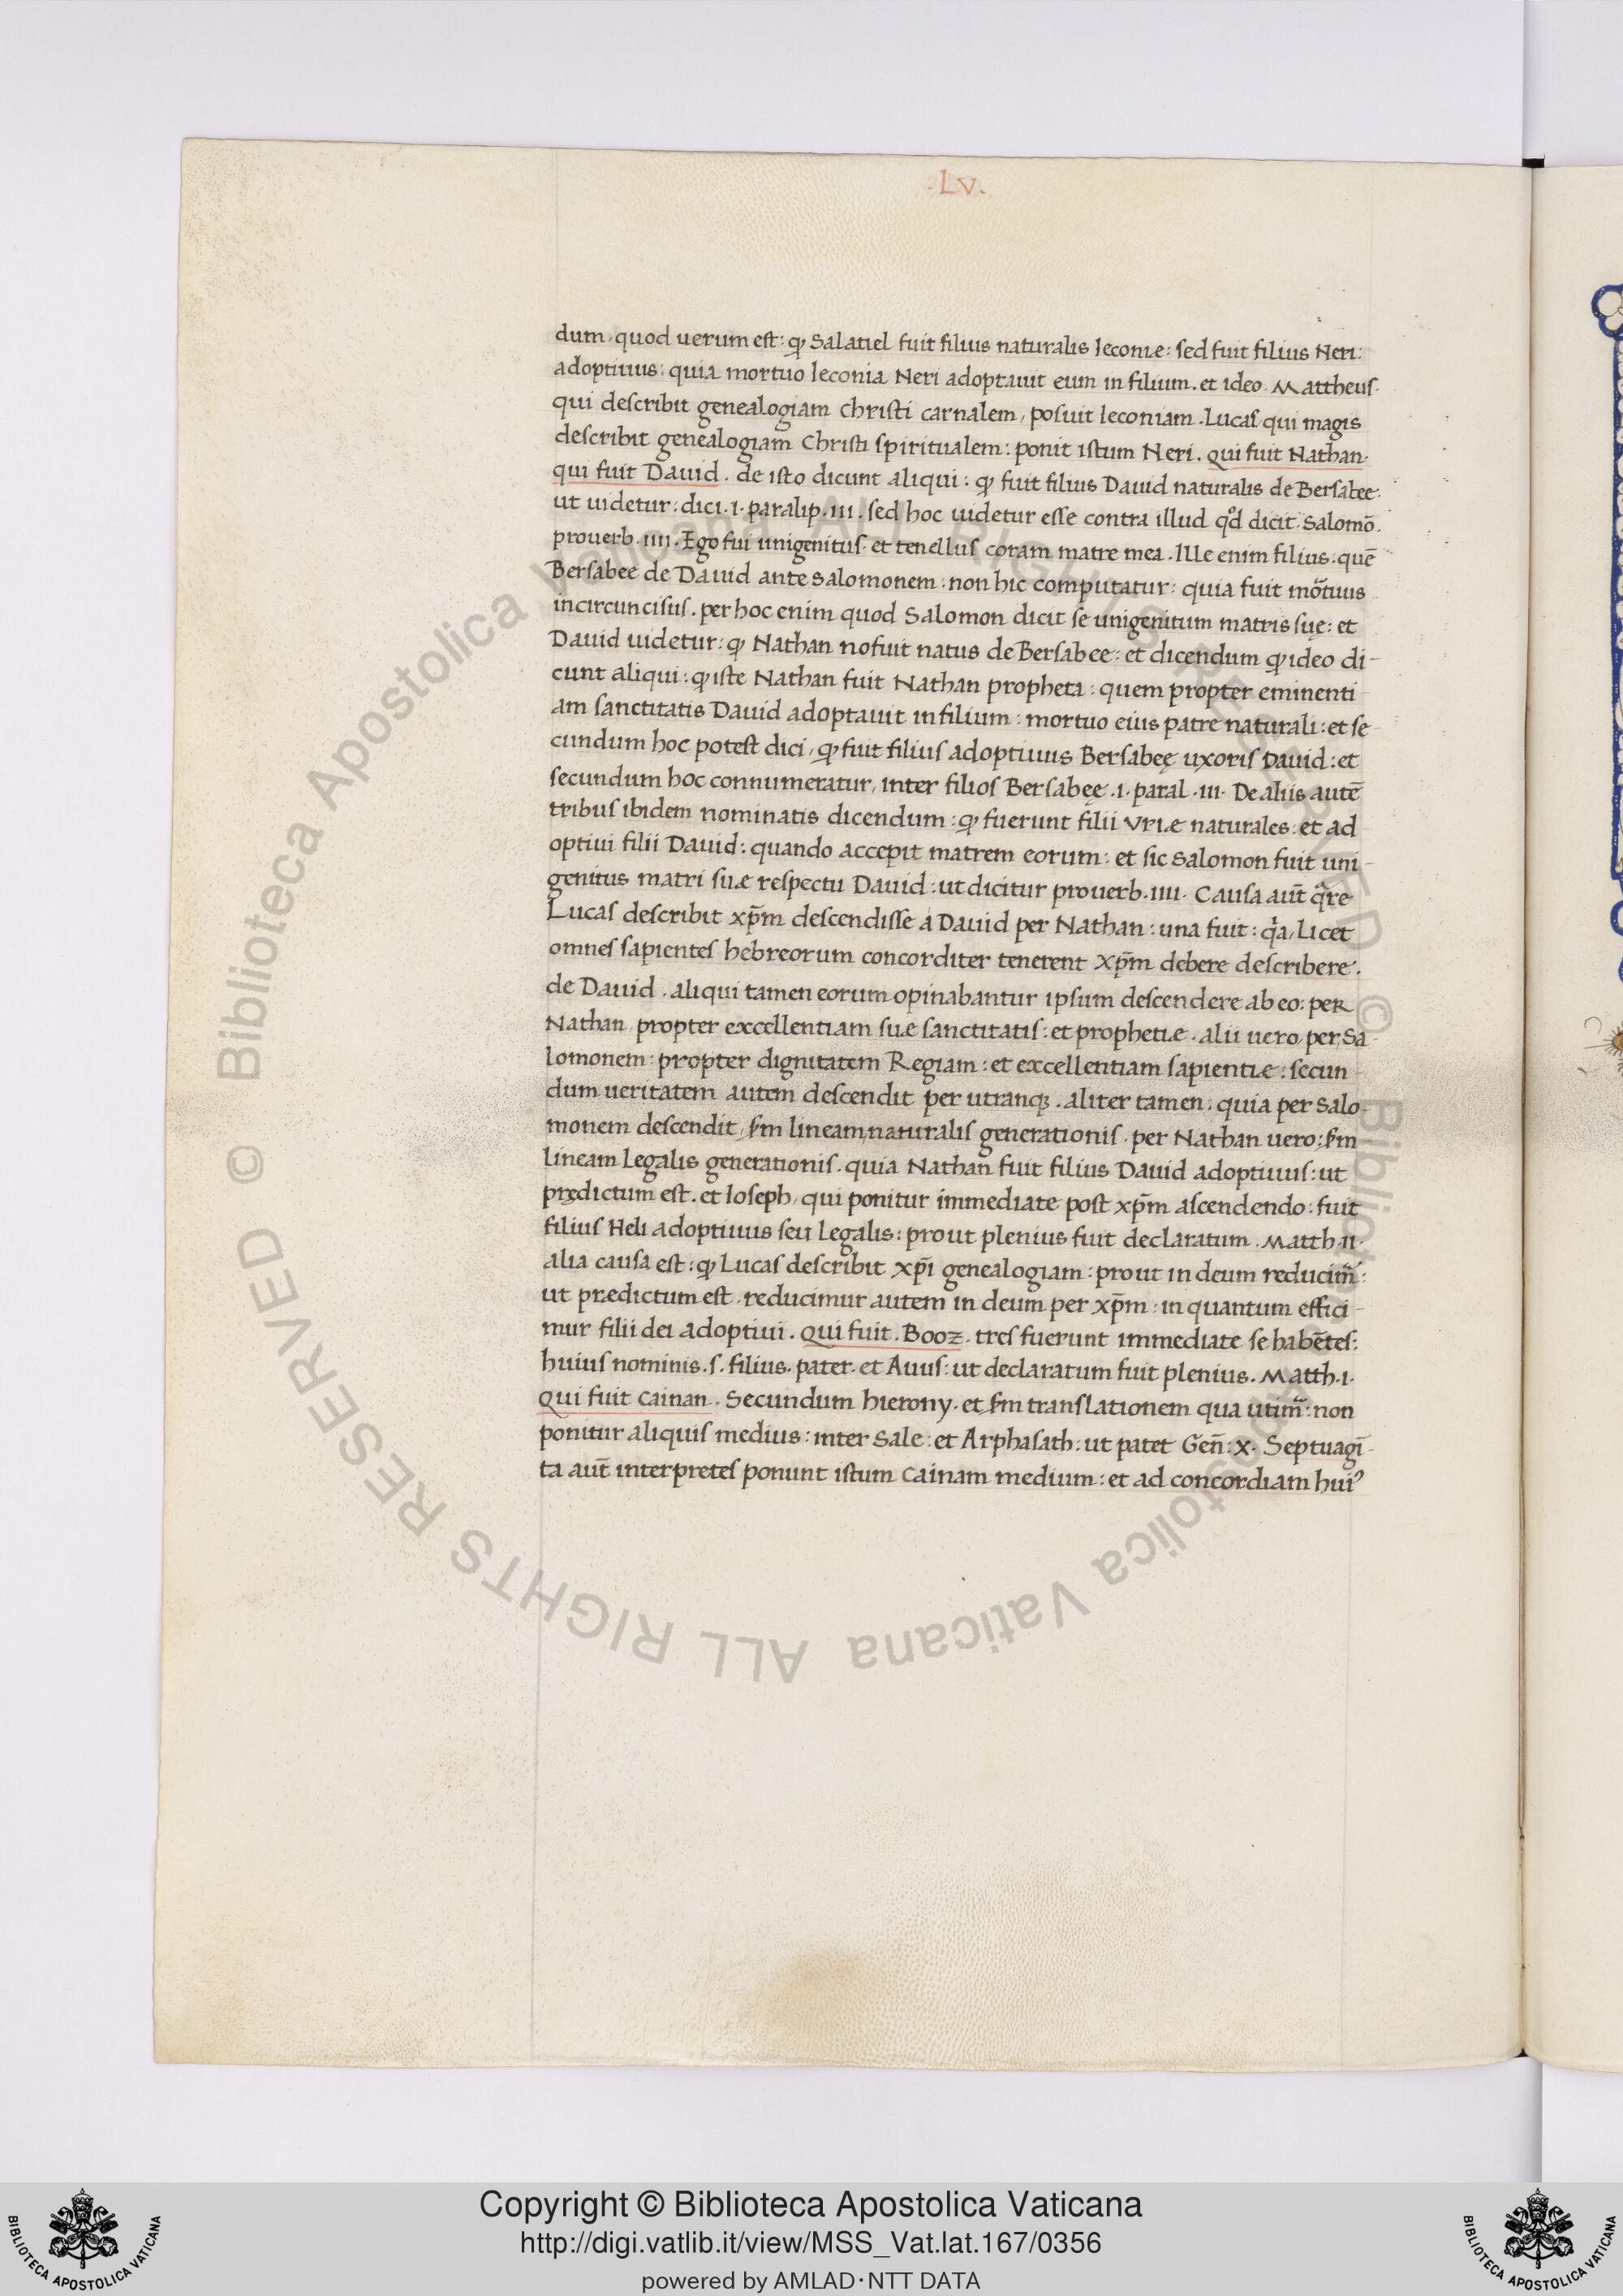 .LV.
dum. quod uerum est: ꝙ Salatiel fuit filius naturalis Ieconiæ: sed fuit filius Neri:
adoptiuus: quia mortuo Ieconia Neri adoptauit eum in filium. et ideo. Mattheus.
qui describit genealogiam christi carnalem, posuit Ieconiam. Lucas, qui magis
describit genealogiam Christi spiritualem: ponit istum Neri. Qui fuit Nathan.
qui fuit Dauid. de isto dicunt aliqui: ꝙ fuit filius Dauid naturalis de Bersabee:
ut uidetur: dici. i. paralip. iii. sed hoc uidetur esse contra illud qd̊ dicit. Salomō.
prouerb. iiii. Ego fui unigenitus. et tenellus coram matre mea. Ille enim filius: quē
Bersabee de Dauid ante Salomonem: non hic computatur: quia fuit mõtuus
incircuncisus. per hoc enim quod Salomon dicit se unigenitum matris suę: et
Dauid uidetur: ꝙ Nathan nofuit natus de Bersabee: et dicendum ꝙ ideo di-
cunt aliqui: ꝙ iste Nathan fuit Nathan propheta: quem propter eminenti-
am sanctitatis Dauid adoptauit in filium: mortuo eius patre naturali: et se-
cundum hoc potest dici, ꝙ fuit filius adoptiuus Bersabeę uxoris Dauid: et
secundum hoc connumeratur, inter filios Bersabeę. i. paral. iii. De aliis autē
tribus ibidem nominatis dicendum: ꝙ fuerunt filii Vriæ naturales: et ad
optiui filii Dauid: quando accepit matrem eorum: et sic Salomon fuit uni-
genitus matri suæ respectu Dauid: ut dicitur prouerb. iiii. Causa aut̄ qͣre
Lucas describit xp̄m descendisse a Dauid per Nathan: una fuit: qͣa, Licet
omnes sapientes hebreorum concorditer tenerent xp̄m debere describere.
de Dauid. aliqui tamen eorum opinabantur ipsum descendere ab eo: per
Nathan, propter excellentiam suæ sanctitatis: et prophetiæ. alii uero, per Sa-
lomonem: propter dignitatem Regiam: et excellentiam sapientiæ: secun-
dum ueritatem autem descendit per utranqꝫ. aliter tamen: quia per Salo-
monem descendit, s̄m lineam naturalis generationis. per Nathan uero: s̄m
lineam legalis generationis. quia Nathan fuit filius Dauid adoptiuus: ut
prędictum est. et Ioseph, qui ponitur immediate post xp̄m ascendendo: fuit
filius Heli adoptiuus seu legalis: prout plenius fuit declaratum. Matth. ii.
alia causa est: ꝙ Lucas describit xp̄i genealogiam: prout in deum reducim̃:
ut prædictum est. reducimur autem in deum per xp̄m: in quantum effici-
mur filii dei adoptiui. Qui fuit. Booz. tres fuerunt immediate se habētes:
huius nominis. s. filius. pater. et Auus: ut declaratum fuit plenius. Matth. i.
Qui fuit Cainan. Secundum hierony. et s̄m translationem qua utim̃: non
ponitur aliquis medius: inter Sale: et Arphasath: ut patet Gen̄: x. Septuagī-
ta aut̄ interpretes ponunt istum Cainam medium: et ad concordiam huiꝰ
Copyright © Biblioteca Apostolica Vaticana
http://digi.vatlib.it/view/MSS_Vat.lat.167/0356
powered by AMLAD·NTT DATA
BIBLIOTECA APOSTOLICA VATICANA
BIBLIOTECA APOSTOLICA VATICANA
© Biblioteca Apostolica Vaticana ALL RIGHTS RESERVED © Biblioteca Apostolica Vaticana ALL RIGHTS RESERVED